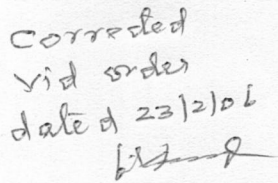 Corrected
vid order
dated 23/2/06